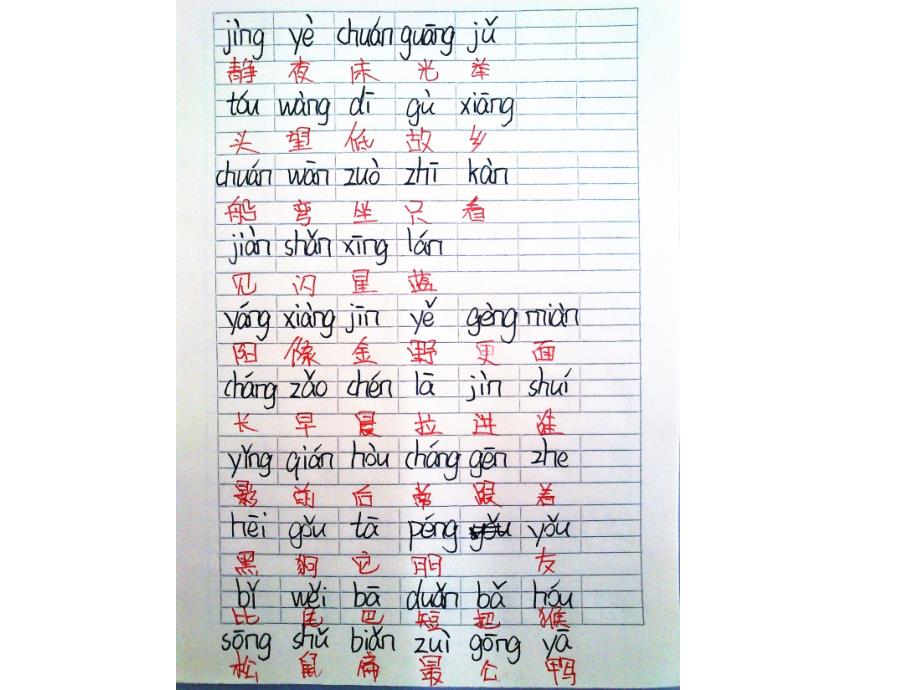 jìng yè chuán guāng jǔ
静 夜 床 光 举
tóu wàng dī gù xiāng
头 望 低 故 乡
chuán wān zuò zhī kàn
船 弯 坐 只 看
jiàn shǎn xīng lán
见 闪 星 蓝
yáng xiàng jīn yě gèng miàn
阳 像 金 野 更 面
cháng zǎo chén lā jìn shuí
长 早 晨 拉 进 谁
yǐng qián hòu cháng gēn zhe
影 前 后 常 跟 着
hēi gǒu tā péng yǒu
黑 狗 它 朋 友
bǐ wěi bā duǎn bǎ hóu
比 尾 巴 短 把 猴
sōng shǔ biǎn zuì gōng yā
松 鼠 扁 最 公 鸭